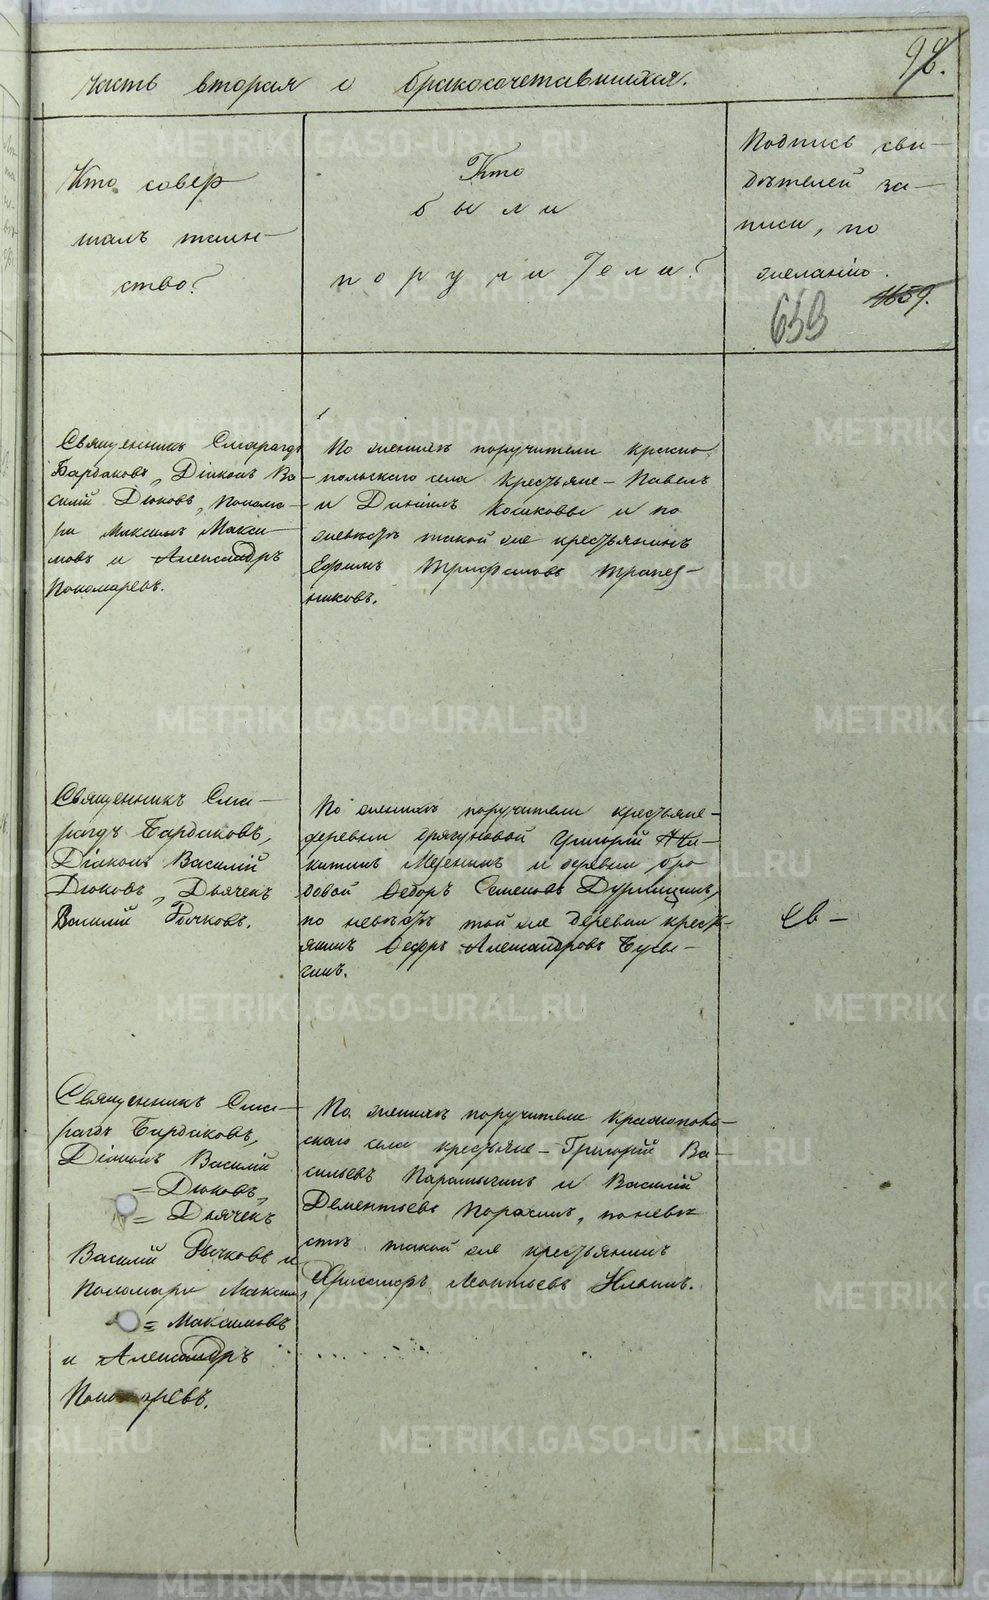 98.
Часть вторая о бракосочетавшихся.
Кто совер
шалъ таин-
ство?
Кто
были
поручители?
Подпись сви-
дѣтелей за-
писи, по
желанію.
1659.
653
Священникъ Смарагдъ
Бардаковъ, Діаконъ Ва-
силій Дюковъ, Понома-
ри Максимъ Макси-
мовъ и Александръ
Пономаревъ.
По женихѣ поручители красно
польскаго села Крестьяне - Павелъ
и Даніилъ Косиковы и по
невѣстѣ такой же крестьянинъ
Ефимъ Трифановъ Трапез-
никовъ.
Священникъ Сма-
рагдъ Бардаковъ,
Діаконъ Василій
Дюковъ, Дьячекъ
Василій Рычковъ.
По женихѣ поручители крестьяне -
деревни Григорій Ни-
китинъ Мезенинъ и деревни Бро-
довой Ѳедоръ Семеновъ
по невѣстѣ той же деревни крестья-
янинъ Ѳедоръ Александровъ Бусы-
гинъ.
Св -
Священникъ Сма-
рагдъ Бардаковъ,
Діаконъ Василій
= Дюковъ,
= Дьячекъ
Василій Рычковъ и
Пономари Максимъ
= Максимовъ
и Александръ
Пономаревъ.
По женихѣ поручители Краснополь-
скаго села крестьяне - Григорій Ва-
сильевъ и Василій
Дементьевъ по невѣ
стѣ такой же крестьянинъ
Христофоръ Леонтьевъ Ильинъ.
METRIKI.GASO-URAL.RU